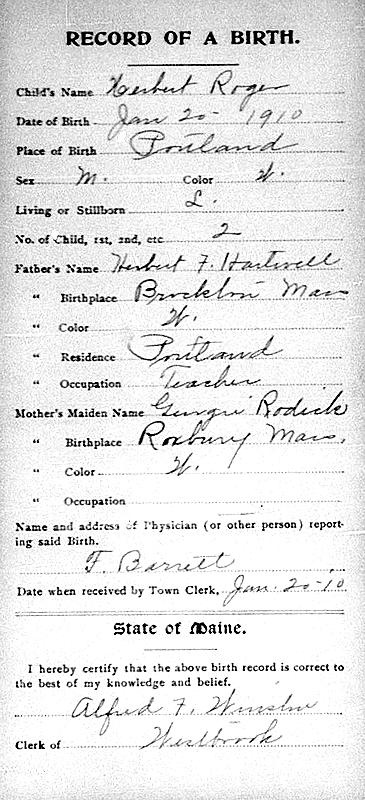 RECORD OF A BIRTH.
Child's Name Herbert Roger
Date of Birth Jan 20 1910
Place of Birth Portland
Sex M. Color W.
Living or Stillborn L.
No. of Child, 1st, 2nd, etc. 2
Father's Name Herbert F. Hartwell
" Birthplace Brockton Mass
" Color W.
" Residence Portland
" Occupation Teacher
Mother's Maiden Name Georgie Rodick
" Birthplace Roxbury Mass.
" Color W.
" Occupation
Name and address of Physician (or other person) report-
ing said Birth.
F. Barrett
Date when received by Town Clerk, Jan. 20-10
State of Maine.
I hereby certify that the above birth record is correct to
the best of my knowledge and belief.
Alfred F. Winslow
Clerk of Westbrook